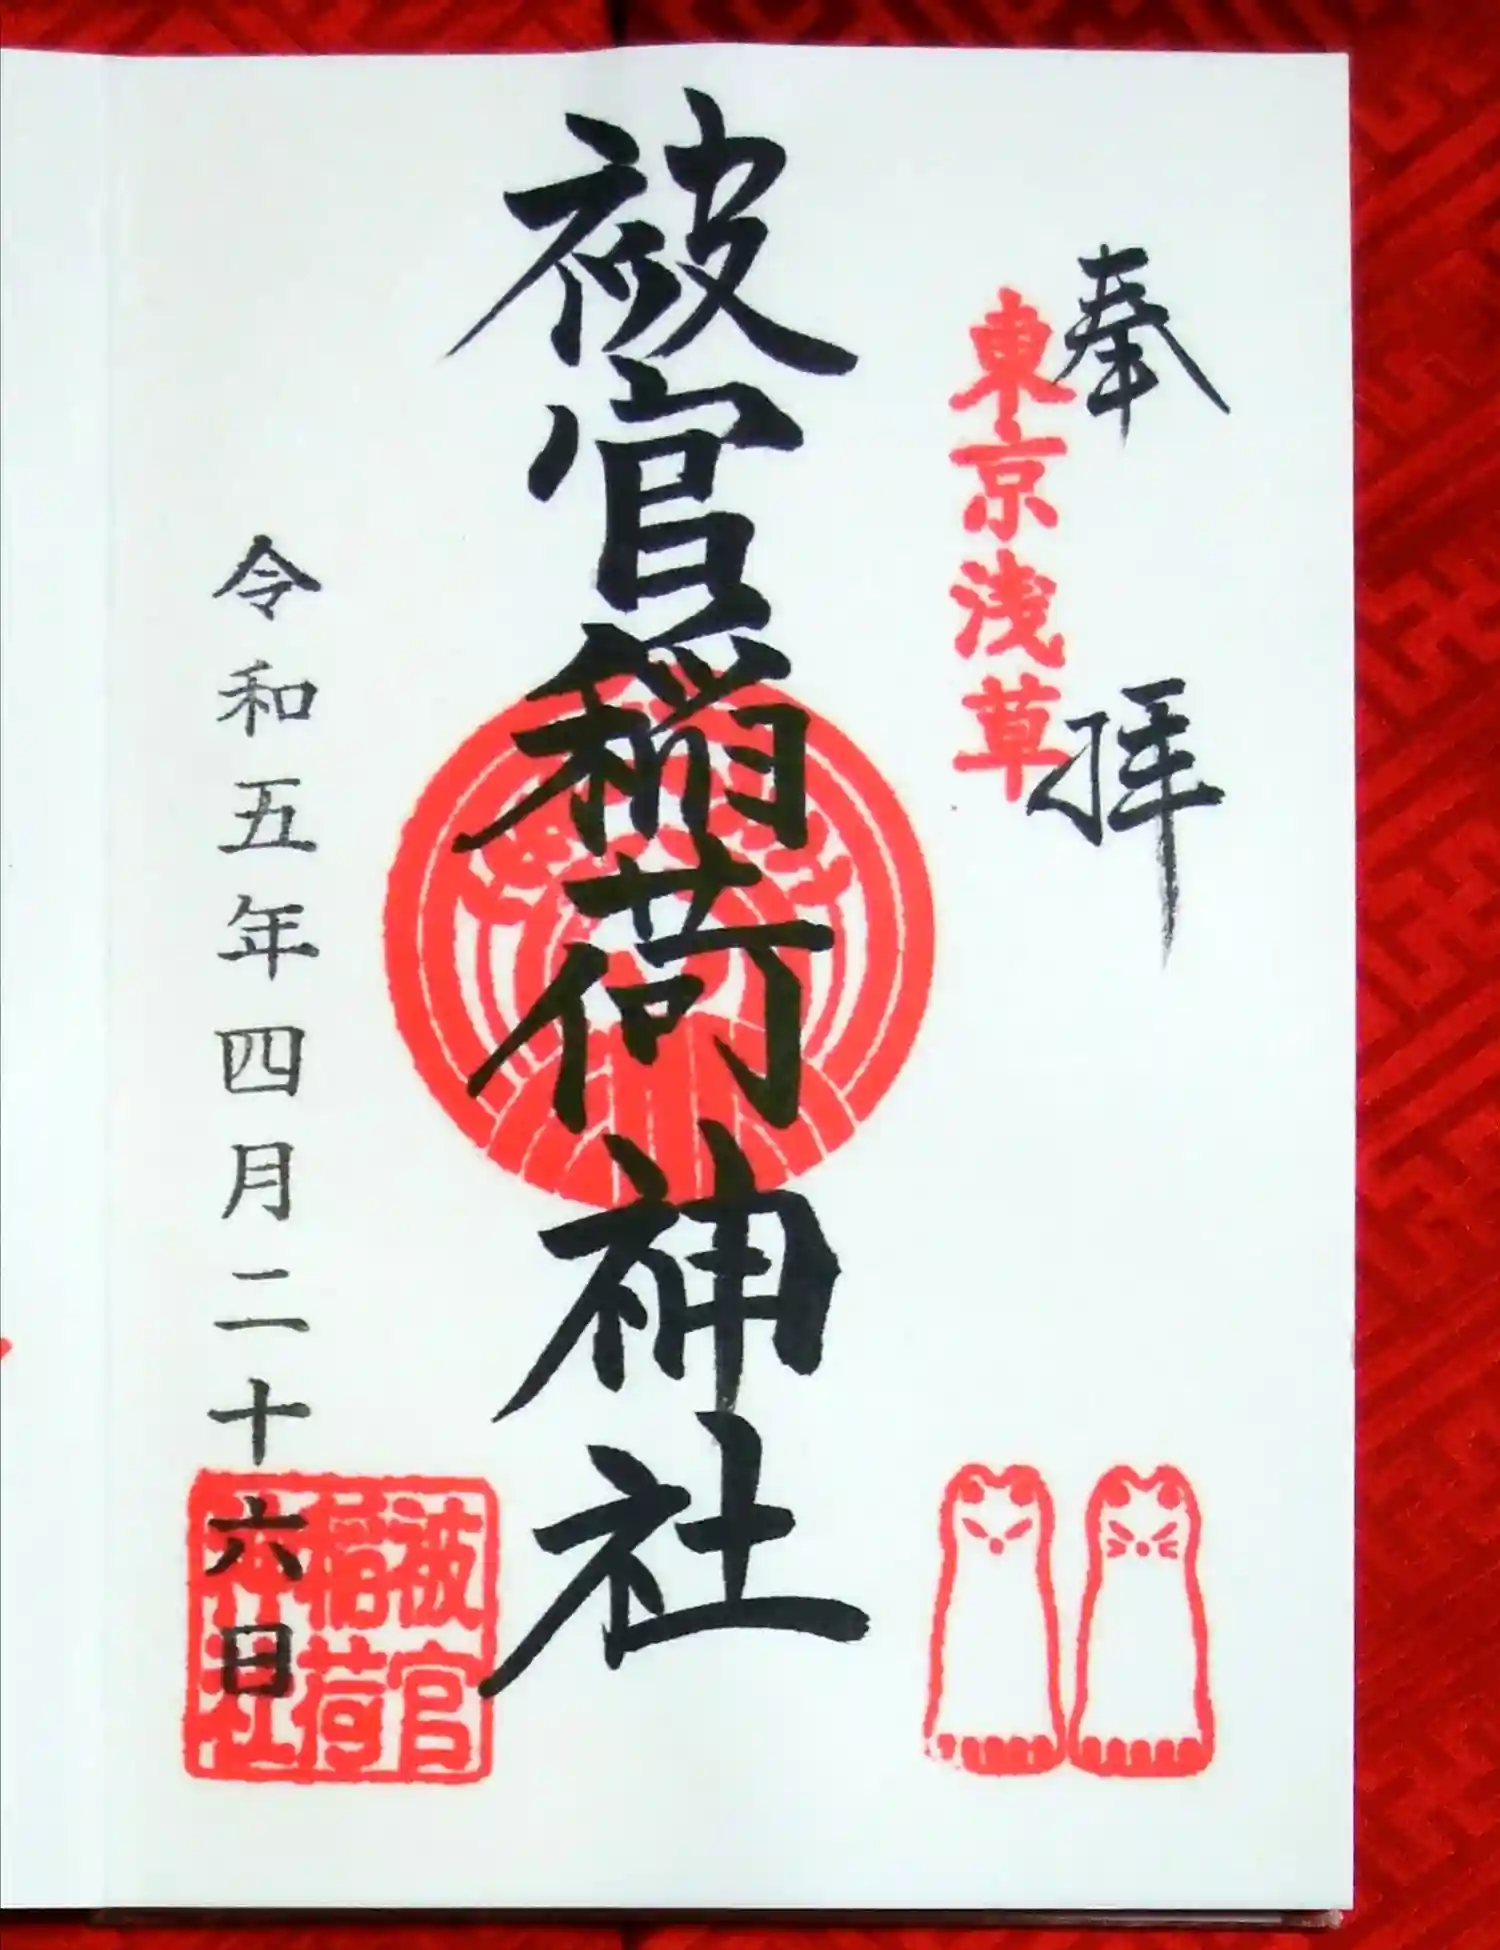 奉拝
東京浅草
被官稲荷神社
令和五年四月二十六日
被官
稲荷
神社